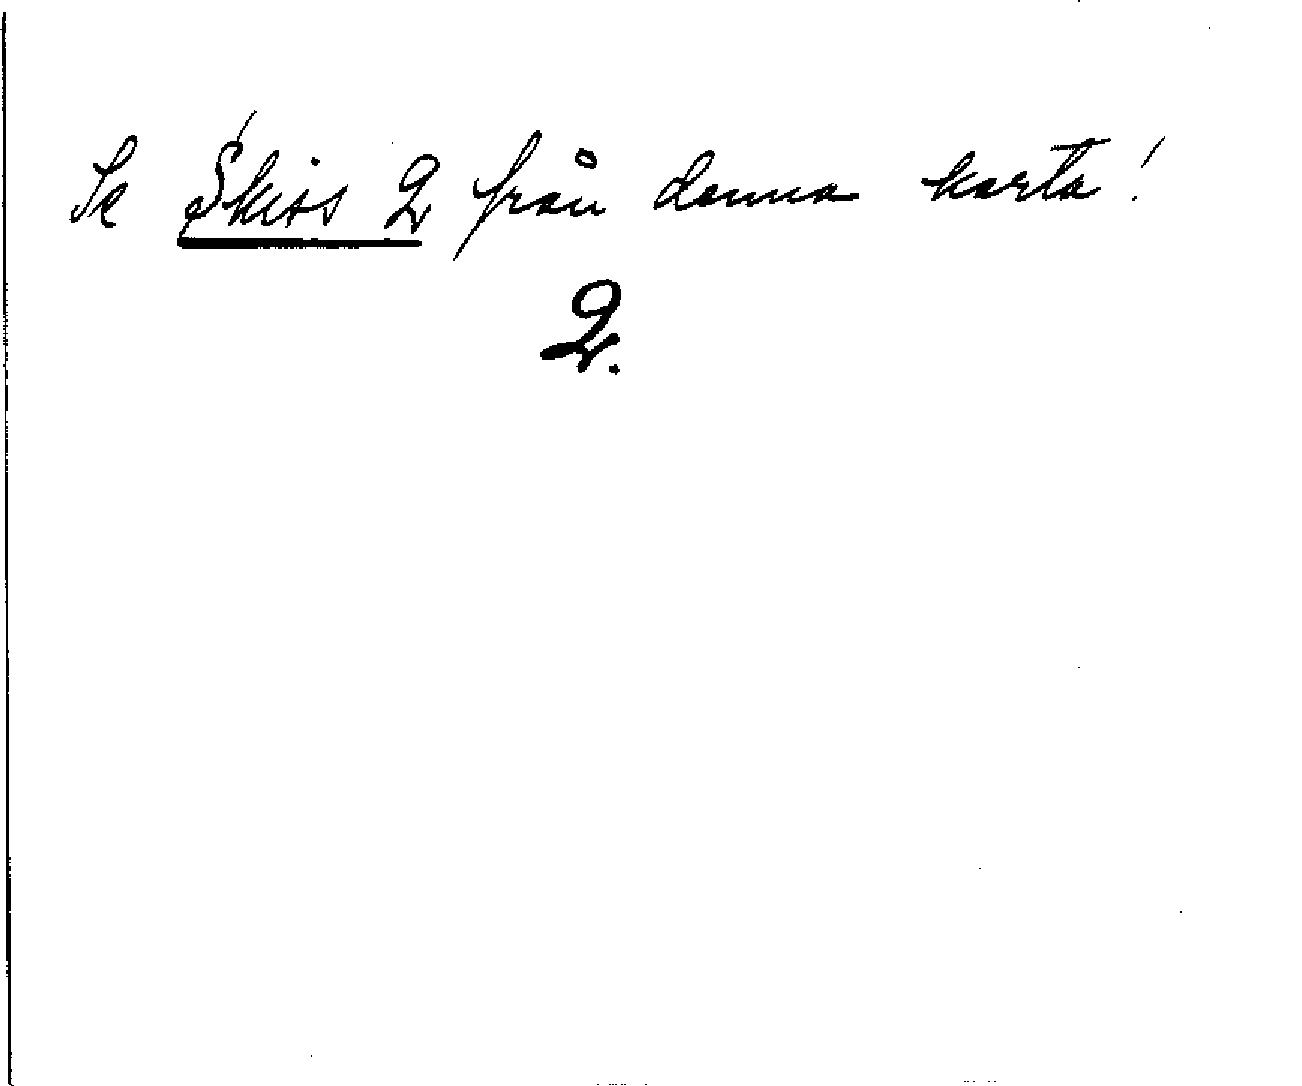 Se Skiss 2 från denna karta!
2.